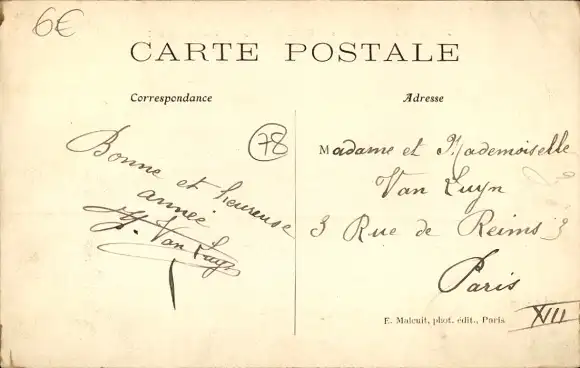 6€
CARTE POSTALE
Correspondance
Adresse
78
Bonne et heureuse
année
H. Van Luyn
Madame et Mademoiselle
Van Luyn
3 Rue de Reims 3
Paris
E. Malcuit, phot. édit., Paris
XIII